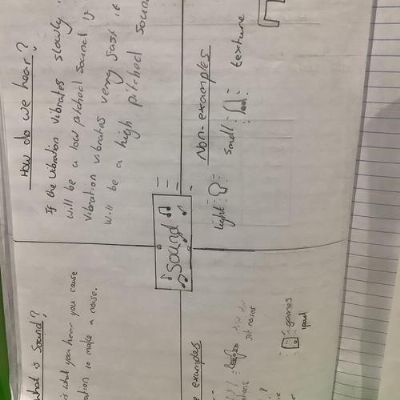 What is Sound?
is what you hear you cause
vibration to make a noise.
How do we hear?
If the vibration vibrates slowly
will be a low pitched sound if
vibration vibrates verry fast it
will be a high pitched sound
Sound
examples
games
ipad
Non-examples
light
smell
texture